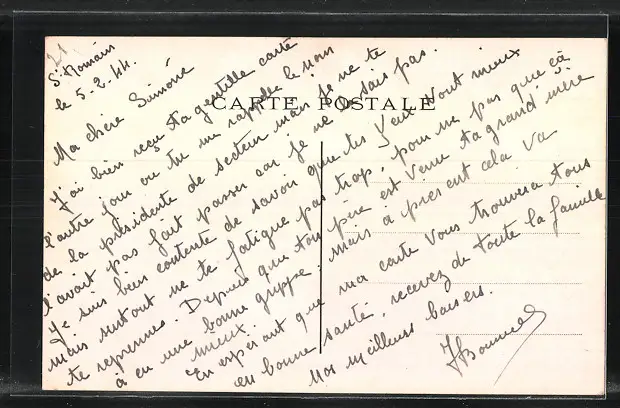 21
St Romain
le 5-2-44.
CARTE POSTALE
Ma chère Simone
J'ai bien reçu ta gentille carte
l'autre jour ou tu me rappelle le nom
de la présidente de secteur mais je ne te
l'avait pas fait passer car je ne le sais pas.
Je suis bien contente de savoir que tes yeux vont mieux
mais surtout ne te fatigue pas trop, pour ne pas que ça
te reprenne. Depuis que ton père est venu ta grand'mère
à eu une bonne grippe, mais à present cela va
mieux.
En espérant que ma carte vous trouvera tous
en bonne santé, recevez de toute la famille
Nos meilleurs baisers.